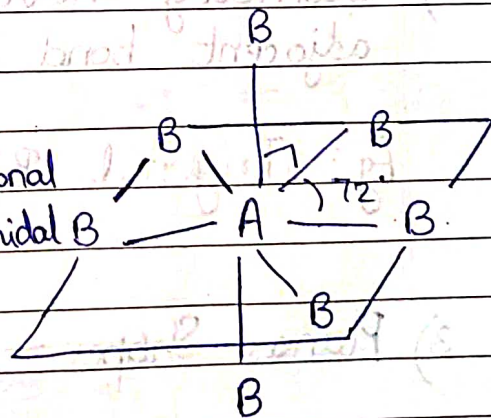 B
B B
onal
72°
uidal B A B
B
B